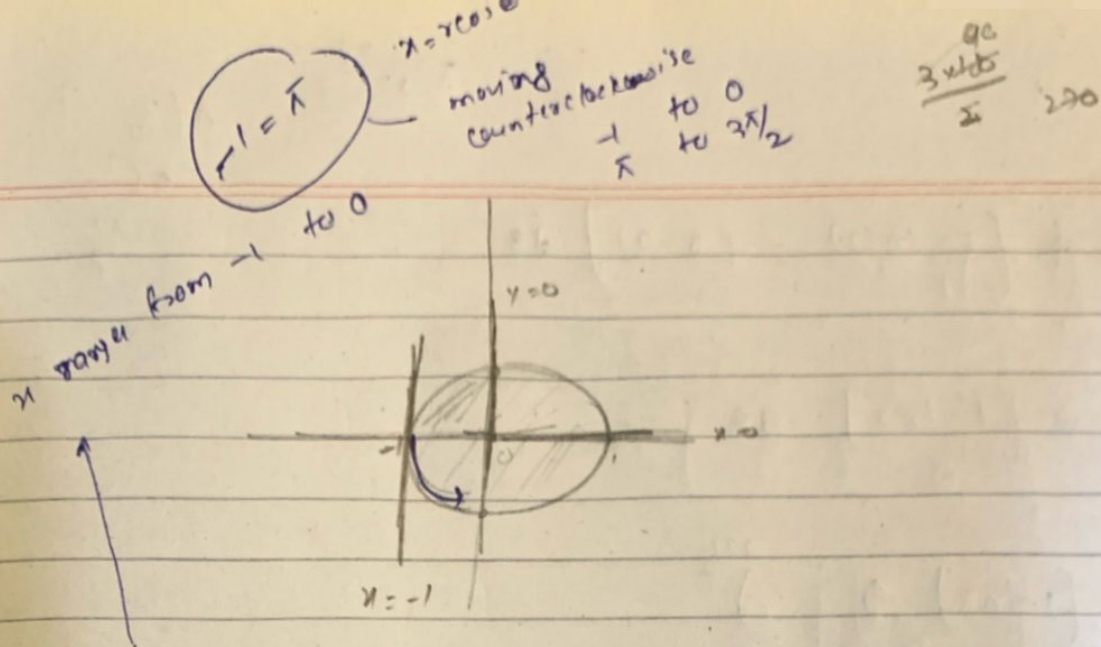 x = rcosθ
-1 = π
moving
counterclockwise
-1 to 0
π to 3π/2
90
2
270
x range from -1 to 0
y = 0
-1
0
1
x = -1